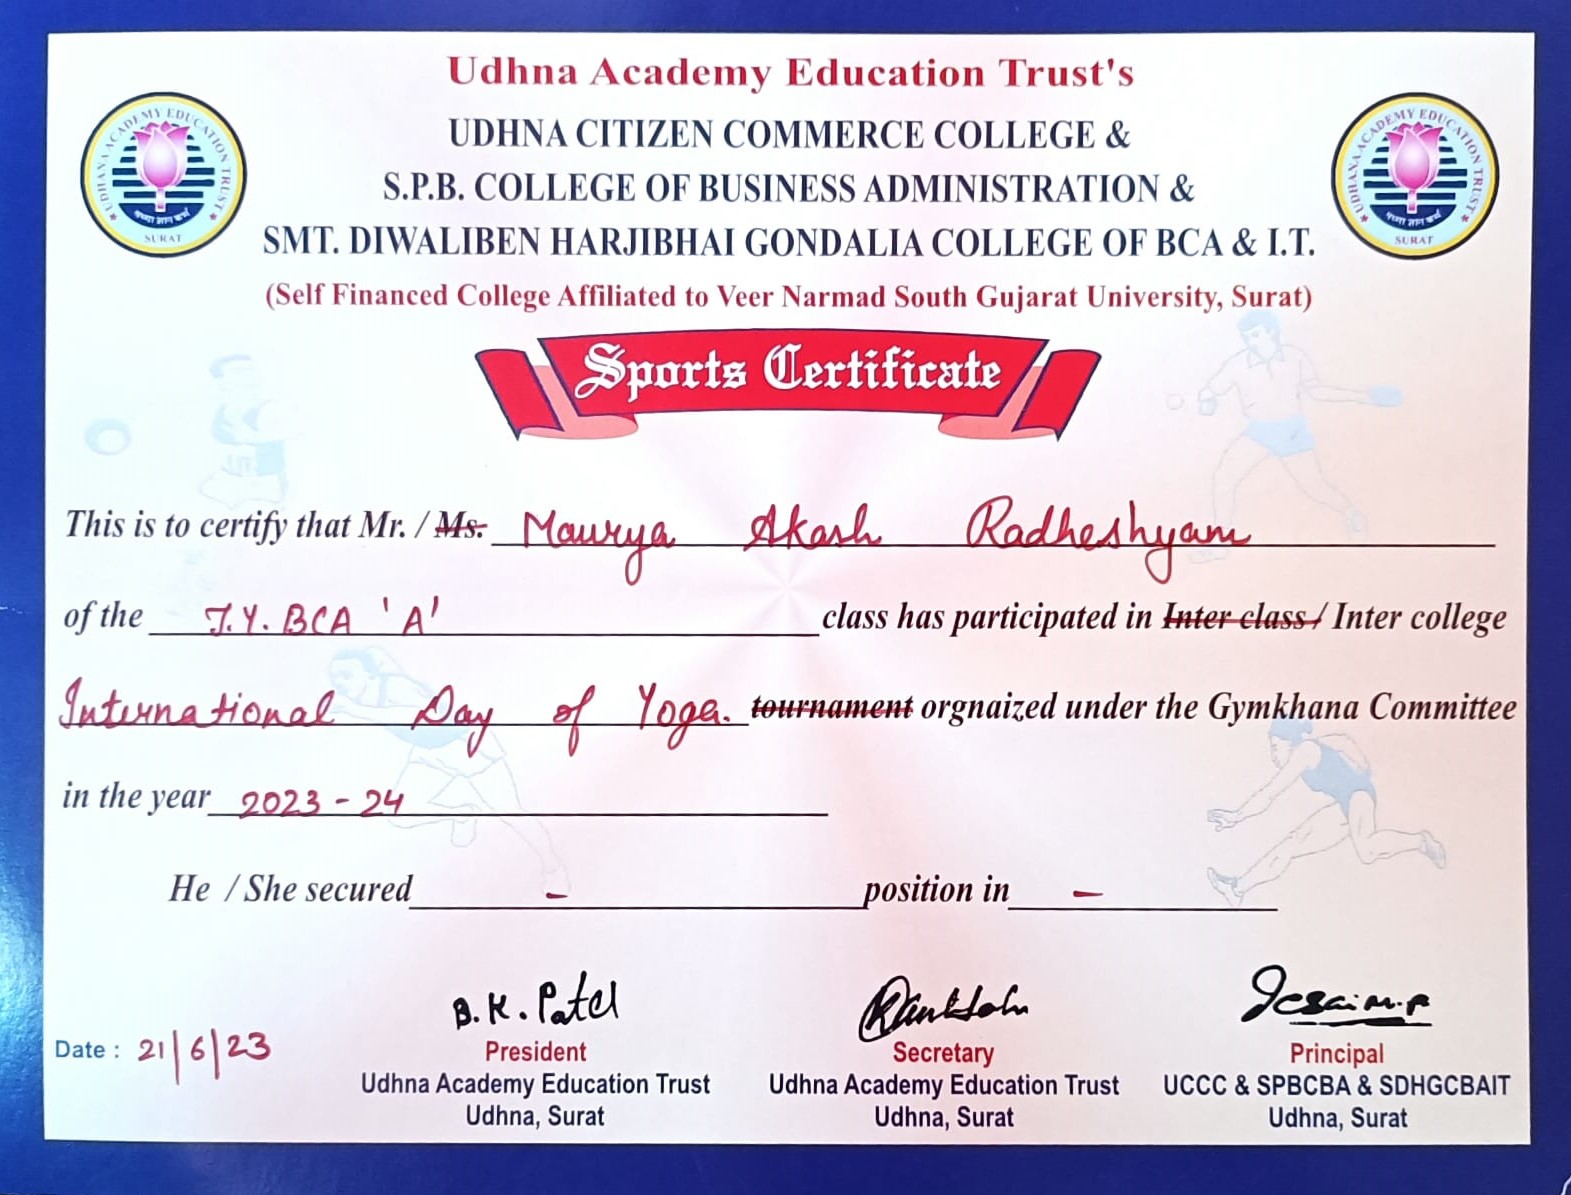 Udhna Academy Education Trust's
UDHNA CITIZEN COMMERCE COLLEGE &
S.P.B. COLLEGE OF BUSINESS ADMINISTRATION &
SMT. DIWALIBEN HARJIBHAI GONDALIA COLLEGE OF BCA & I.T.
(Self Financed College Affiliated to Veer Narmad South Gujarat University, Surat)
UDHANA ACADEMY EDUCATION TRUST
SURAT
UDHANA ACADEMY EDUCATION TRUST
SURAT
Sports Certificate
This is to certify that Mr. / Ms. Maurya Akash Radheshyam
of the T.Y. BCA 'A' class has participated in Inter class / Inter college
International Day of Yoga. tournament orgnaized under the Gymkhana Committee
in the year 2023 - 24
He / She secured - position in -
B. K. Patel
Date : 21/6/23
President Secretary Principal
Udhna Academy Education Trust Udhna Academy Education Trust UCCC & SPBCBA & SDHGCBAIT
Udhna, Surat Udhna, Surat Udhna, Surat